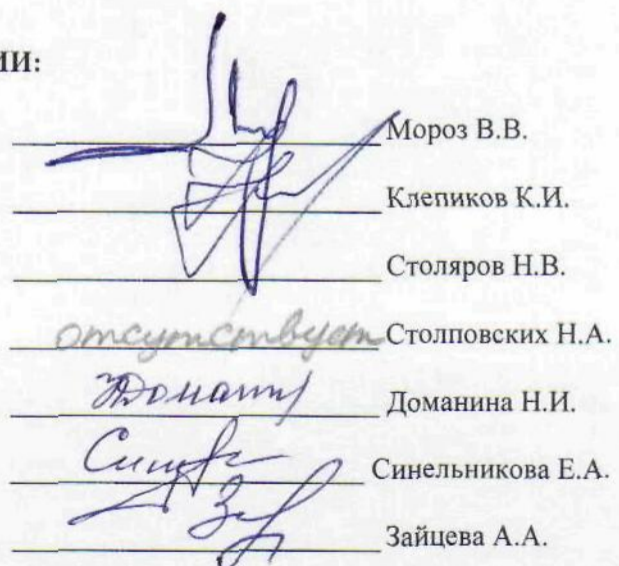 ИИ:
Мороз В.В.
Клепиков К.И.
Столяров Н.В.
отсутствует Столповских Н.А.
Доманина Н.И.
Синельникова Е.А.
Зайцева А.А.